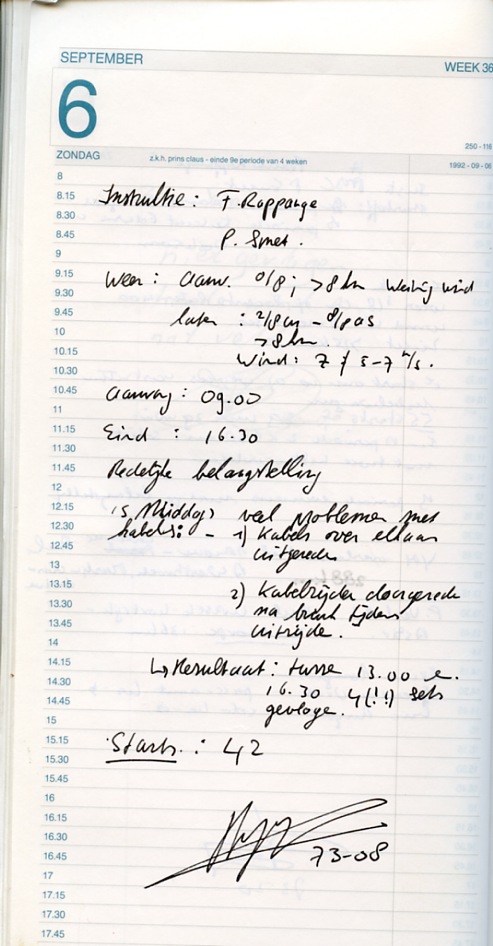 SEPTEMBER
WEEK 36
6
250 - 116
ZONDAG
z.k.h. prins claus - einde 9e periode van 4 weken
1992 - 09 - 06
8
8.15 Instruktie : F. Roppange
8.30
P. Smet.
8.45
9
9.15 Weer : aanv. 0/8 ; >8 km weinig wind
9.30
9.45 later : 2/8 cu - 8/8
10 >8 km.
10.15 Wind : Z 5-7 m/s.
10.30
10.45 aanvang : 09.00
11
11.15 Eind : 16.30
11.30
11.45 Redelijke belangstelling
12
12.15 's Middags veel problemen met
12.30 kabels : - 1) Kabels over elkaar
12.45 uitgereden
13
13.15 2) Kabelrijder doorgereden
13.30 na tijdens
13.45 uitrijden.
14
14.15 ↳ Resultaat : tussen 13.00 en
14.30 16.30 4(!!) sets
14.45 gevlogen.
15
15.15 Starts : 42
15.30
15.45
16
16.15
16.30
16.45 73-08
17
17.15
17.30
17.45